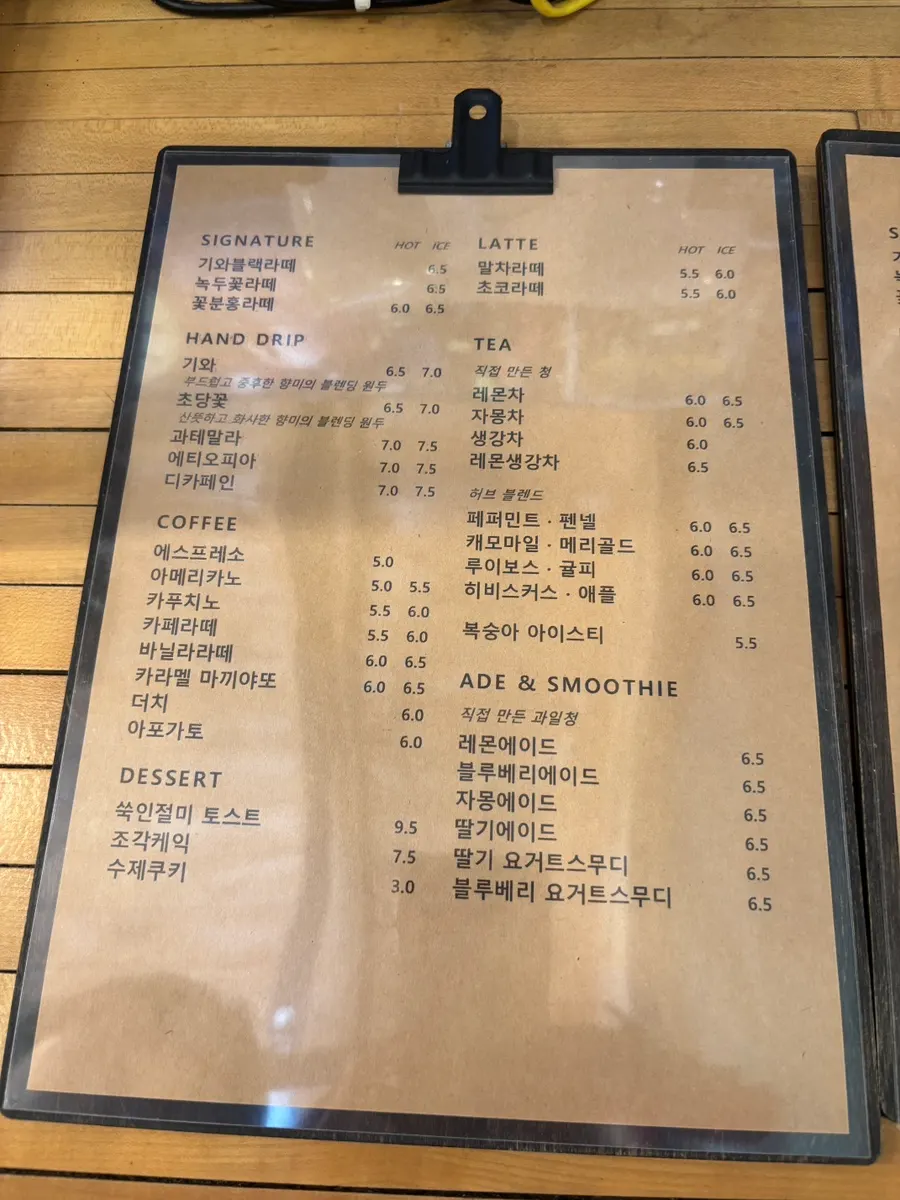 SIGNATURE HOT ICE
기와블랙라떼 6.5
녹두꽃라떼 6.5
꽃분홍라떼 6.0 6.5
HAND DRIP
기와 6.5 7.0
부드럽고 중후한 향미의 블렌딩 원두
초당꽃 6.5 7.0
산뜻하고 화사한 향미의 블렌딩 원두
과테말라 7.0 7.5
에티오피아 7.0 7.5
디카페인 7.0 7.5
COFFEE
에스프레소 5.0
아메리카노 5.0 5.5
카푸치노 5.5 6.0
카페라떼 5.5 6.0
바닐라라떼 6.0 6.5
카라멜 마끼야또 6.0 6.5
더치 6.0
아포가토 6.0
DESSERT
쑥인절미 토스트 9.5
조각케익 7.5
수제쿠키 3.0
LATTE HOT ICE
말차라떼 5.5 6.0
초코라떼 5.5 6.0
TEA
직접 만든 청
레몬차 6.0 6.5
자몽차 6.0 6.5
생강차 6.0
레몬생강차 6.5
허브 블렌드
페퍼민트 · 펜넬 6.0 6.5
캐모마일 · 메리골드 6.0 6.5
루이보스 · 귤피 6.0 6.5
히비스커스 · 애플 6.0 6.5
복숭아 아이스티 5.5
ADE & SMOOTHIE
직접 만든 과일청
레몬에이드 6.5
블루베리에이드 6.5
자몽에이드 6.5
딸기에이드 6.5
딸기 요거트스무디 6.5
블루베리 요거트스무디 6.5